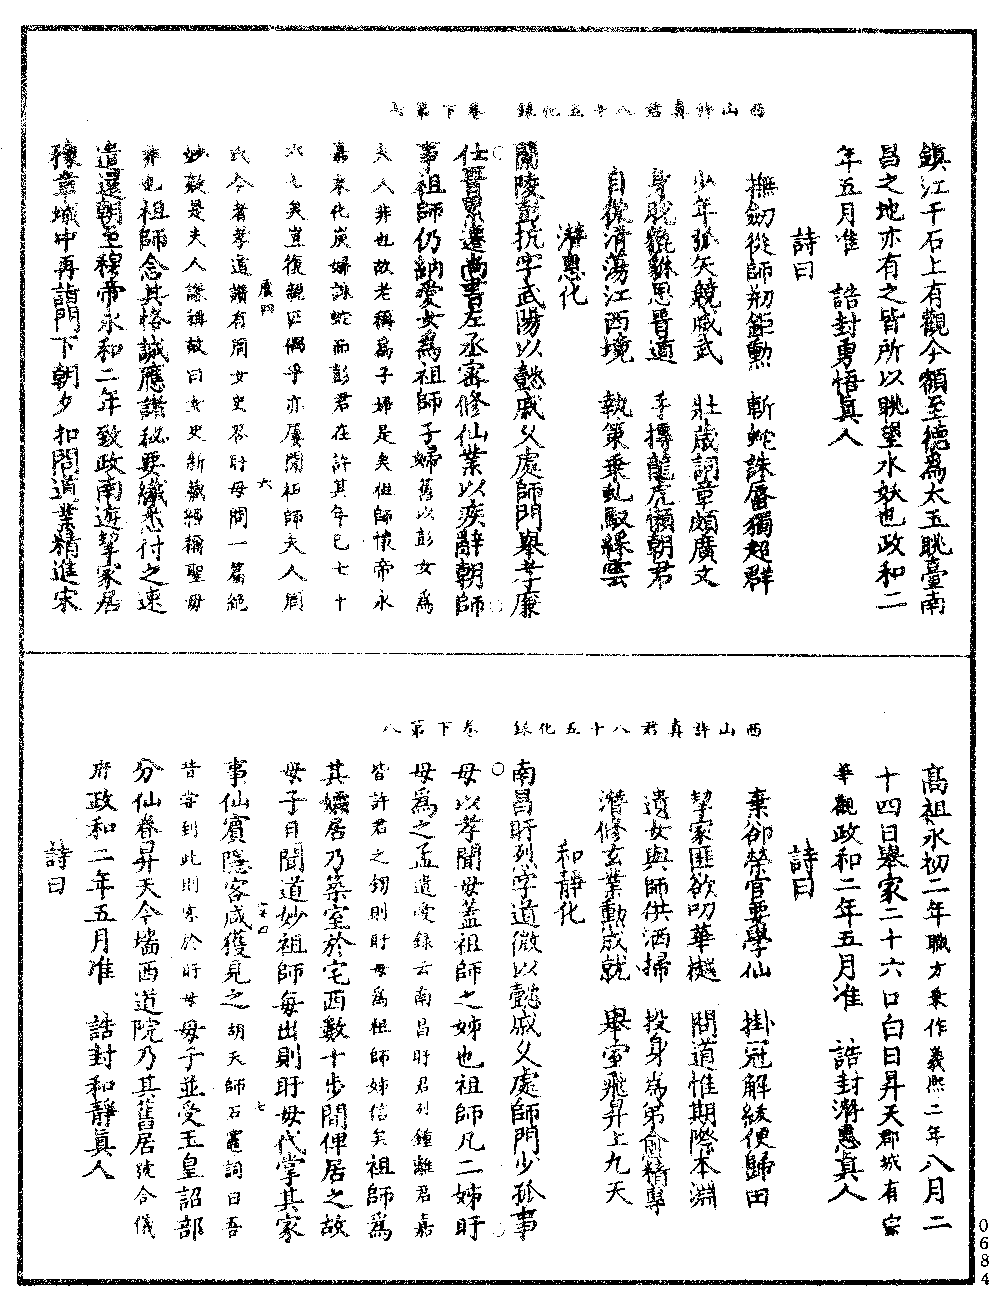 西山許真君八十五化錄　卷下第七
鎮江千石上有觀今額至德爲太玉眺臺南
昌之地亦有之皆所以眺望水妖也政和二
年五月准　誥封勇悟真人
詩曰
撫劒從師刱鉅勲　斬蛇誅蜃獨超群
少年弧矢競威武　壯歲詞章頗廣文
身脫貔貅思晉道　手摶龍虎懶朝君
自從清蕩江西境　執策乗虬馭綵雲
潛惠化
蘭陵彭抗字武陽以懿戚父處師門舉孝廉
仕晉累遷尚書左丞審修仙業以疾辭朝師
事祖師仍納愛女爲祖師子婦舊以彭女爲
夫人非也故老稱爲子婦是矣但師懷帝永
嘉末化炭婦誅蛇而彭君在許其年已七十
六七矣豈復親匹偶乎亦屢聞祖師夫人周
氏今考孝道讚有周女史及盱母問一篇絕
妙歎是夫人謙稱故曰女史新觀稱聖母
非也祖師念其恪誠應諸秘要纖悉付之速
遣還朝至穆帝永和二年致政南遊挈家居
豫章城中再詣門下朝夕扣問道業精進宋
西山許真君八十五化錄　卷下第八
高祖永初二年職方乗作義熙二年八月二
十四日舉家二十六口白日昇天郡城有宗
華觀政和二年五月准　誥封潛惠真人
詩曰
棄卻榮官要學仙　掛冠解綬便歸田
挈家匪欲叨華樾　問道惟期際本淵
遺女與師供洒掃　投身爲弟愈精專
潛修玄業勳成就　舉室飛昇上九天
和靜化
南昌盱烈字道微以懿戚父處師門少孤事
母以孝聞母蓋祖師之姊也祖師凡二姊盱
母爲之孟遺愛録云南昌盱君烈鍾離君嘉
皆許君之甥則盱母爲祖師姊信矣祖師爲
其孀居乃築室於宅西數十步間俾居之故
母子日聞道妙祖師每出則盱母代掌其家
事仙賓隱客咸獲見之胡天師石竈詞曰吾
昔嘗到此則寓於盱母母子並受玉皇詔部
分仙眷昇天今墻西道院乃其舊居從合儀
府政和二年五月准　誥封和靜真人
詩曰
0684